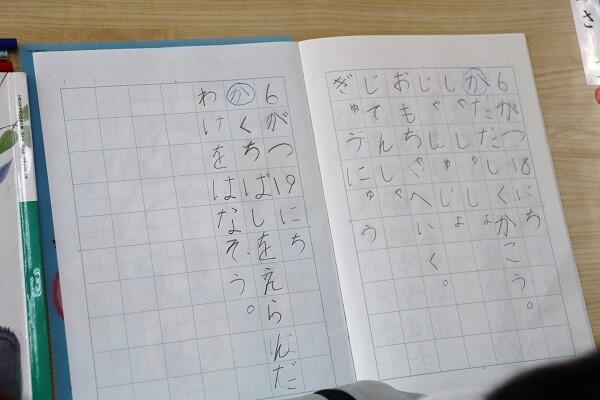 6がつ18にち
か ただしくかこう。
おもちゃへいく。
じてんしゃ
ぎゅうにゅう
6がつ19にち
か くちばしをえらんだ
わけをはなそう。